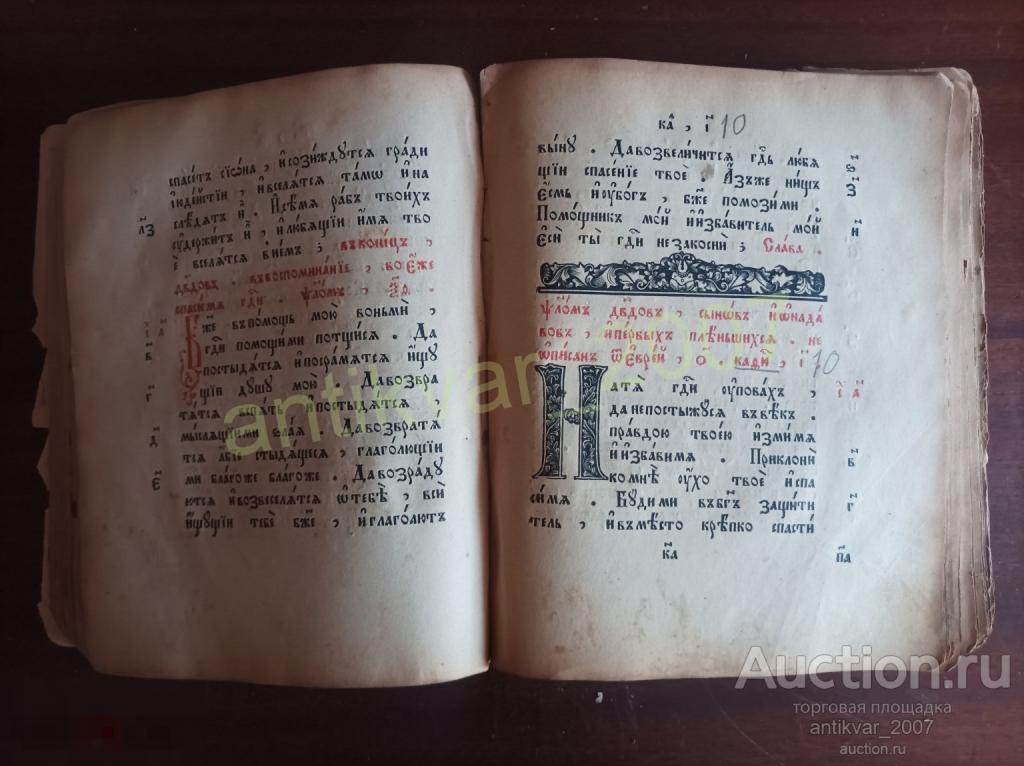 спасе́тъ сїѡ́на, и҆созиждутся гра́ди
і҆юде́йстїи, и҆вселя́тся та́мѡ и҆на
слѣ́дятъ и҆̀. И҆сѣ́мя ра́бъ твои́хъ
л҃з
ѹ҆держи́тъ и҆̀, и҆лю́бящїи и҆́мя тво
ѐ вселя́тся вне́мъ; въконе́цъ,
дв҃довъ. въвоспомина́нїе, во є҆́же
спасе́мя гд҇и. ѱало́мъ, ѯ҃ѳ.
Бж҃е въпо́мощь мою̀ воньмѝ,
гд҇и помощи́ми потщи́ся. Да
в
постыдя́тся и҆посра́мятся и҆́щу
щїи ду́шу мою̀. Давозвра
г
тя́тся вспя́ть и҆постыдя́тся,
мы́слящїи ми ѕла́я. Давозвратя́
д
тся а҆́бїе стыдя́щеся, глаго́лющїи
ми бла́гоже бла́гоже. Давозра́ду
є
ются и҆возвеселя́тся ѡ҆тебѣ̀, всѝ
и҆́щущїи тебѐ бж҃е, и҆глаго́лютъ
ка҃, і҃ 10
вы́ну. Давозвели́чится гд҇ь лю́бя
ѕ
щїи спасе́нїе твоѐ. А҆́зъже ни́щь
з
є҆́смь и҆ѹ҆бо́гъ, бж҃е помози́ми.
Помо́щникъ мо́й и҆и҆зба́витель мо́й
и
є҆сѝ ты̀ гд҇и незакоснѝ; Сла́ва.
ѱало́мъ дв҃довъ, сыно́въ и҆ѡ҆нада́
вовъ, и҆пе́рвыхъ плѣ́ньшихся. не
ѡ҆пи́санъ ѿє҆вре́й, о҃ кади́, і҃ 10
На́тя гд҇и ѹ҆пова́хъ,
да непостыжу́ся въвѣ́къ.
пра́вдою твое́ю и҆зми́мя
и҆и҆зба́вимя. Приклонѝ
в
комнѣ̀ ѹ҆́хо твоѐ и҆спа
си́мя. Бу́дими въбг҃ъ защи́ти
г
тель, и҆въмѣ́сто крѣ́пко спастѝ
ка
п҃а
antikvar_2007
Auction.ru
торговая площадка
antikvar_2007
auction.ru